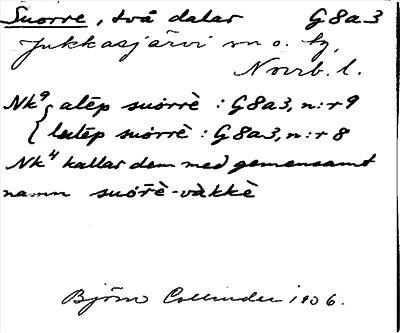 Suorre, två dalar G8a3
Jukkasjärvi sn o. tg,
Norrb. l.
Nk9 { alēp suórrè : G8a3, n:r 9
lulēp suórrè : G8a3, n:r 8
Nk4 kallar dem med gemensamt
namn suóřè-vàkkè
Björn Collinder 1906.